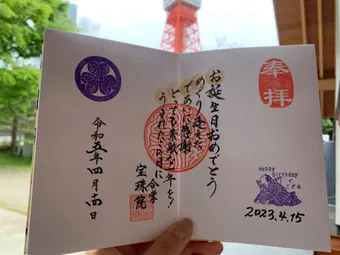 奉拝
お誕生日おめでとう
めぐり逢えた
であいに感謝
とても素敵な年を!
うまれた日に合掌
宝珠院
令和五年四月十四日
Happy Birthday
でござる
2023.4.15